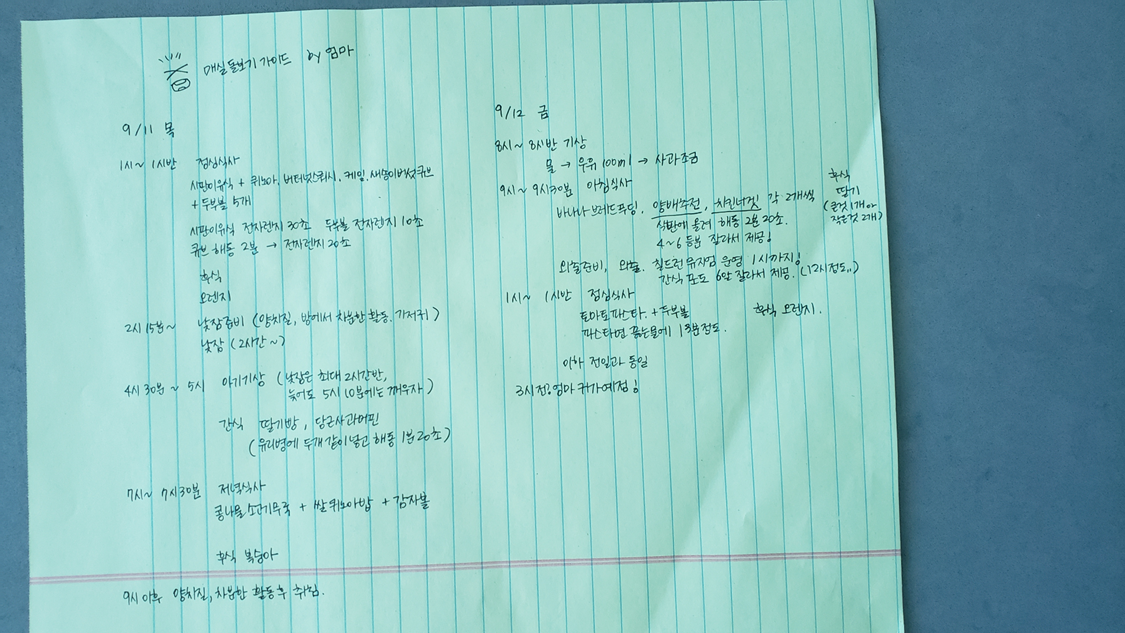 매실돌보기 가이드 by 엄마
9/11 목
1시~ 1시반 점심식사
시판이유식 + 퀴노아, 버터넛스쿼시, 케일, 새송이버섯큐브
+ 두부볼 5개
시판이유식 전자렌지 30초 두부볼 전자렌지 10초
큐브 해동 2분 → 전자렌지 20초
후식
오렌지
2시 15분~ 낮잠준비 (양치질, 방에서 차분한 활동, 기저귀)
낮잠 (2시간~)
4시 30분 ~ 5시 아기기상 (낮잠은 최대 2시간반,
늦어도 5시 10분에는 깨우자)
간식 딸기빵, 당근사과머핀
(유리병에 두개 같이 넣고 해동 1분 20초)
7시~ 7시30분 저녁식사
콩나물 소고기무국 + 쌀퀴노아밥 + 감자볼
후식 복숭아
9시 이후 양치질, 차분한 활동 후 취침.
9/12 금
8시~ 8시반 기상
물 → 우유 100ml → 사과조금
9시~ 9시30분 아침식사
바나나 브레드푸딩, 양배추전, 치킨너겟 각 2개씩
식판에 올려 해동 2분 20초.
4~6 등분 잘라서 제공!
후식
딸기
(큰것 1개 or
작은것 2개)
외출준비, 외출. 칠드런 뮤지엄 운영 1시까지!
간식 포도 6알 잘라서 제공. (12시정도..)
1시~ 1시반 점심식사
토마토파스타 + 두부볼 후식 오렌지.
파스타면 끓는물에 13분정도.
이하 전일과 동일
3시전! 엄마 귀가예정!